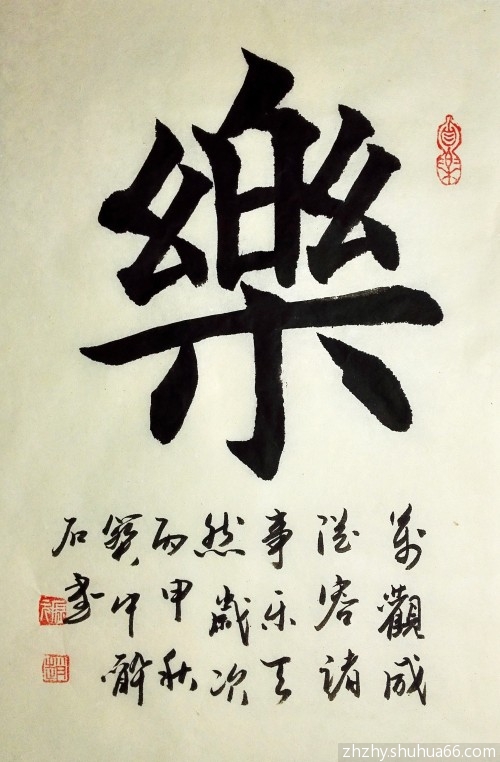 樂
萬觀成
從容諸
事乐天
然歲次
丙申秋
中
石书
zhzhy.shuhua66.com